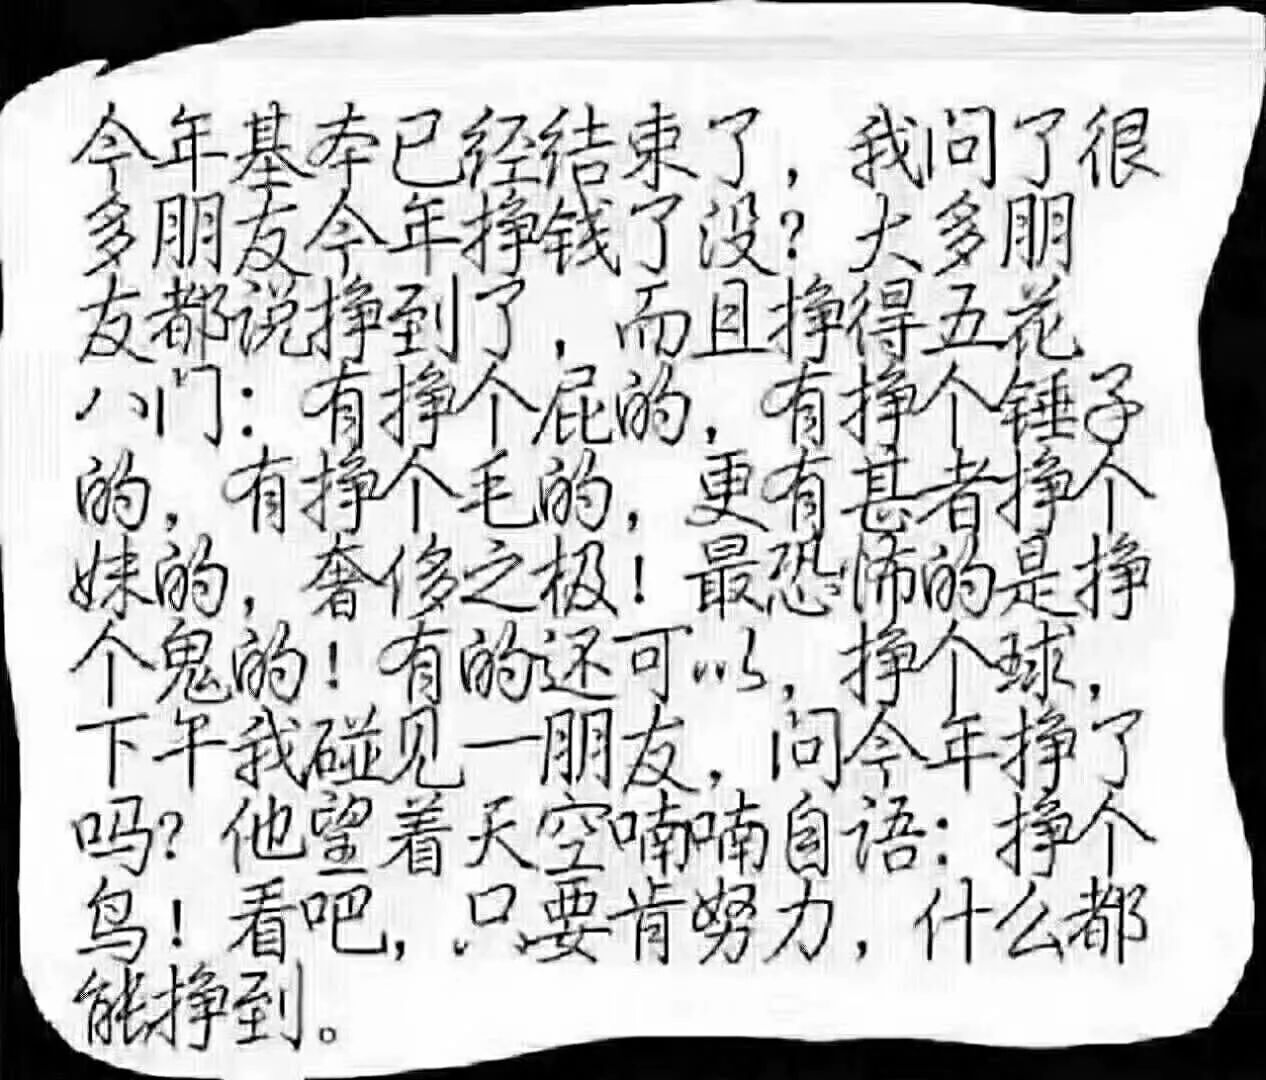 今年基本已经结束了，我问了很
多朋友今年挣钱了没？大多朋
友都说挣到了，而且挣得五花
八门：有挣个屁的，有挣个锤子
的，有挣个毛的，更有甚者挣个
妹的，奢侈之极！最恐怖的是挣
个鬼的！有的还可以，挣个球，
下午我碰见一朋友，问今年挣了
吗？他望着天空喃喃自语：挣个
鸟！看吧，只要肯努力，什么都
能挣到。